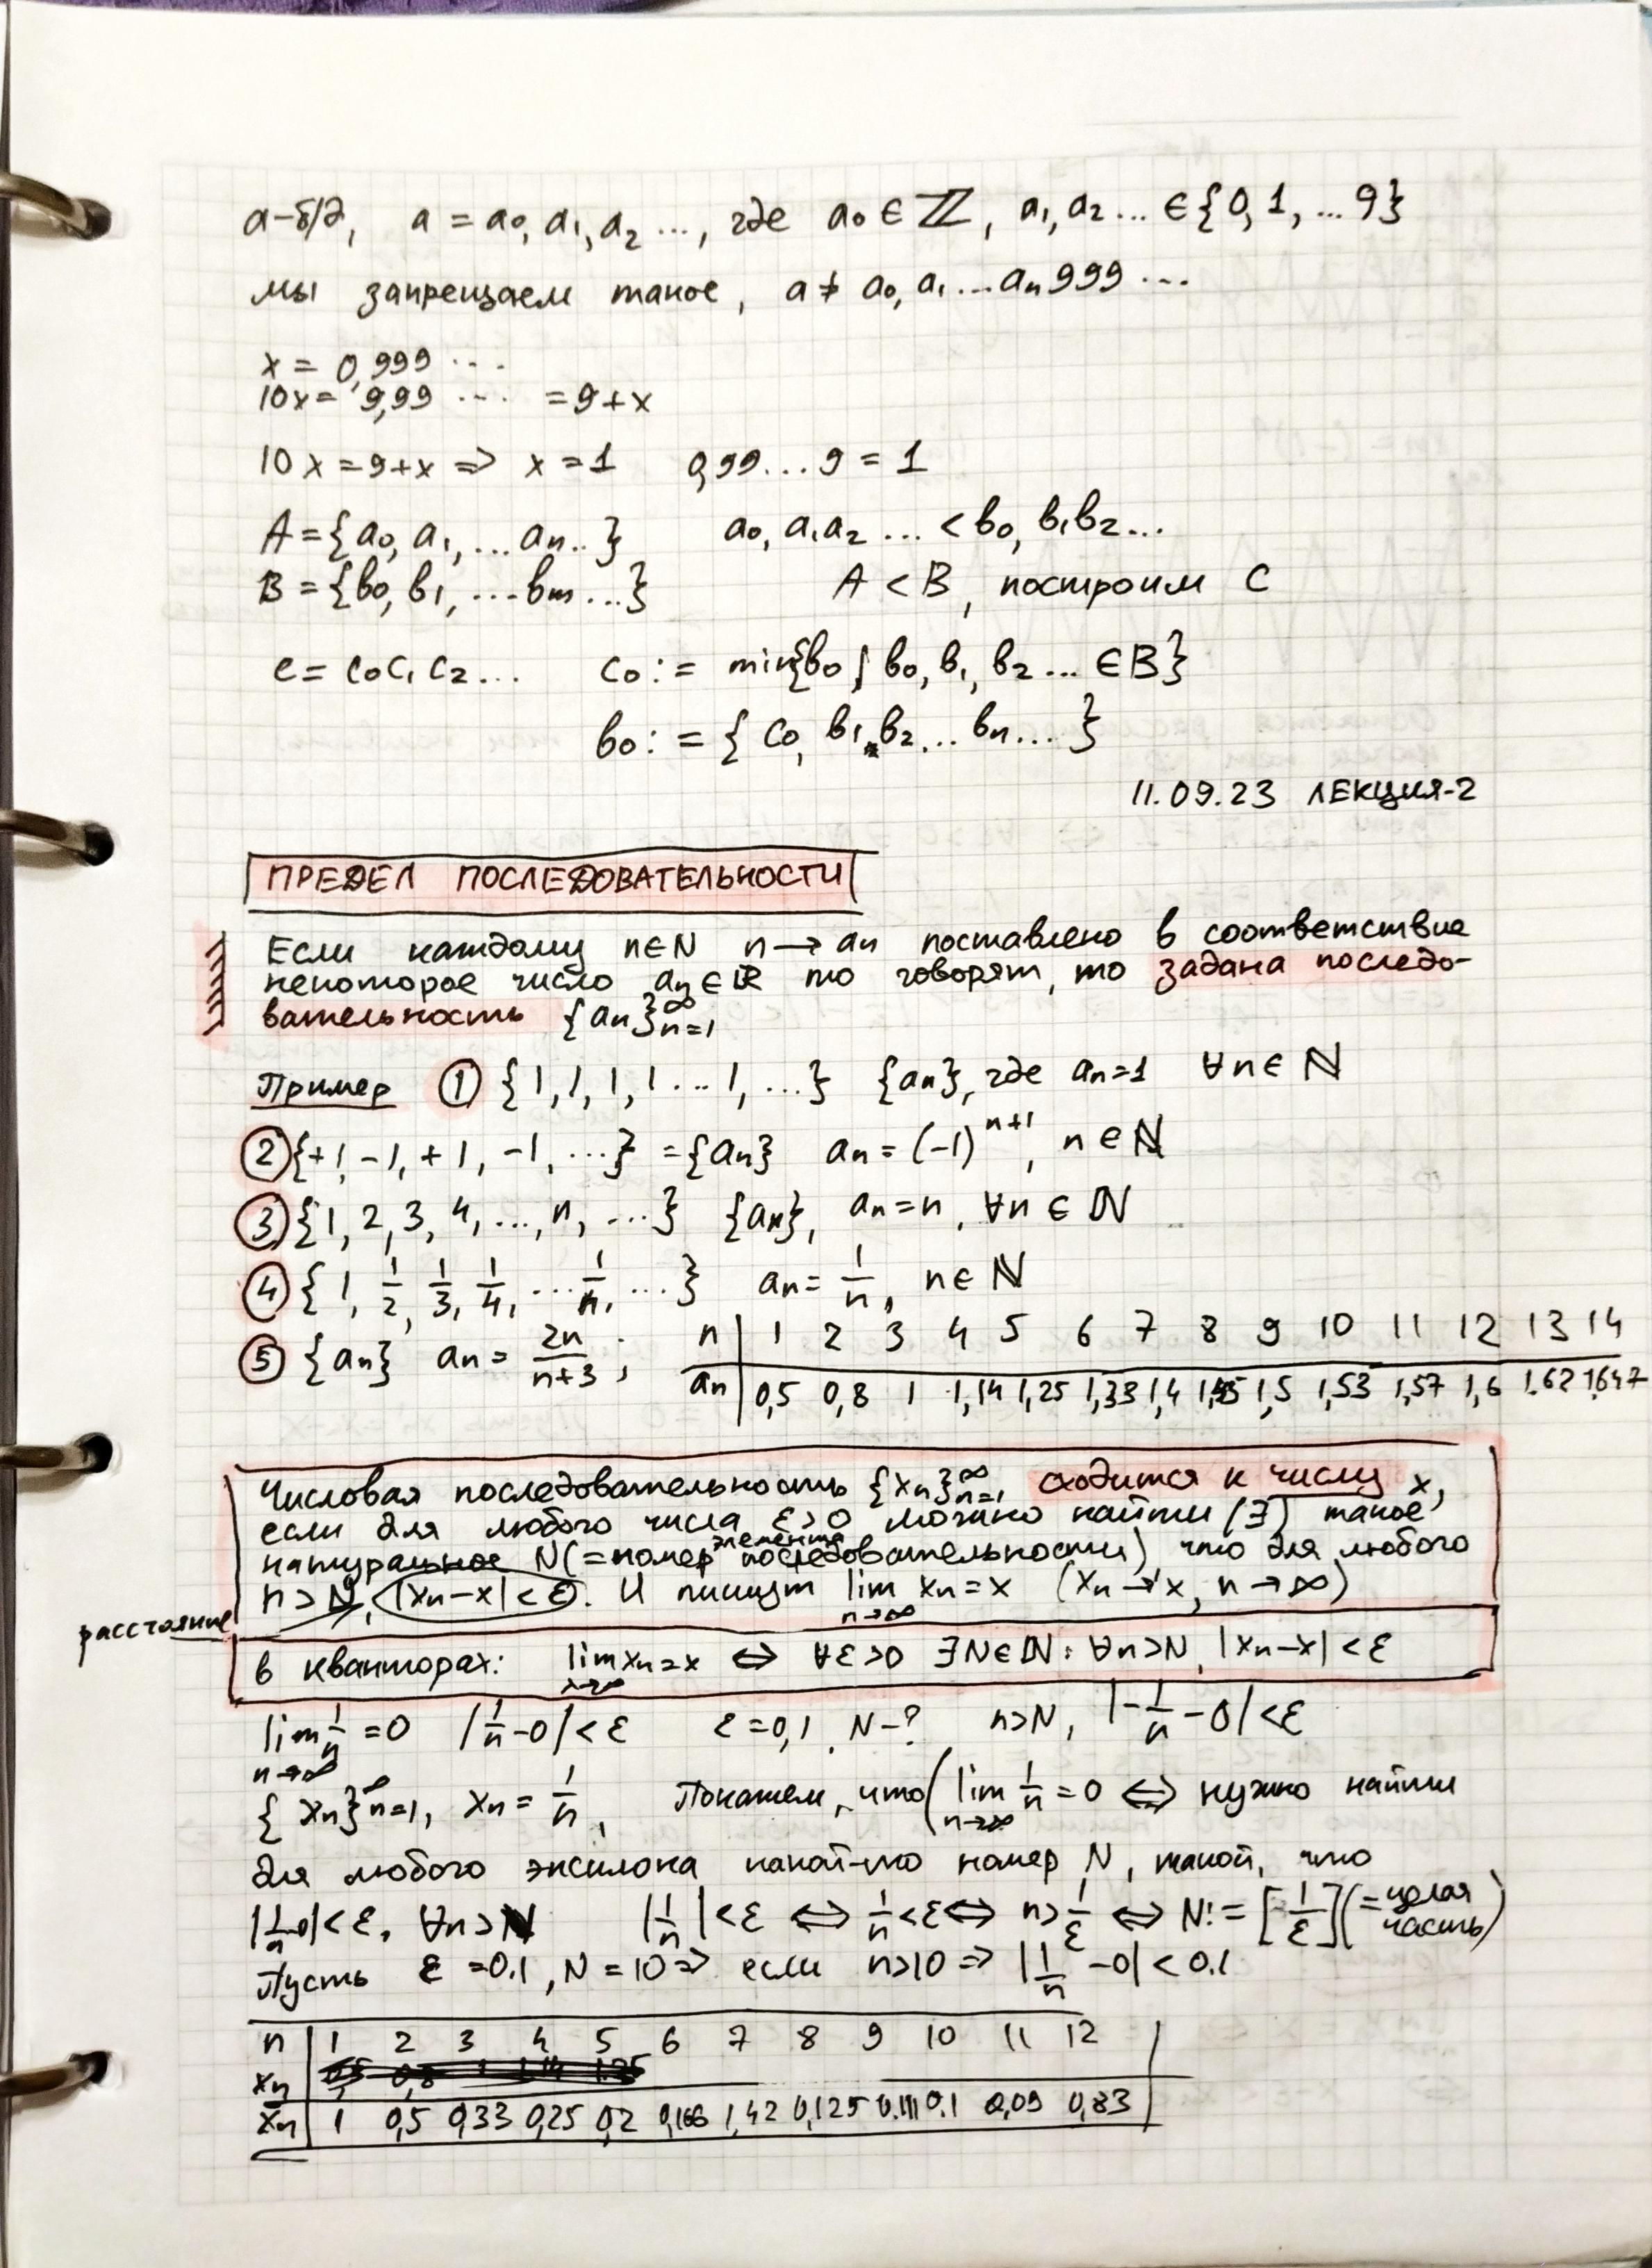 а-б/д, a = a₀, a₁, a₂ ..., где a₀ ∈ ℤ, a₁, a₂ ... ∈ {0, 1, ... 9}
мы запрещаем такое, a ≠ a₀, a₁ ... aₙ 999 ...
x = 0,999 ...
10x = 9,99 ... = 9+x
10x = 9+x ⇒ x = 1 0,99...9 = 1
A = {a₀, a₁, ... aₙ..} a₀, a₁a₂ ... < b₀, b₁b₂...
B = {b₀, b₁, ... bₘ ...} A < B, построим C
c = c₀c₁c₂... c₀ := min{b₀ | b₀, b₁, b₂ ... ∈ B}
b₀ := {c₀, b₁, b₂ ... bₙ ... }
11.09.23 ЛЕКЦИЯ-2
ПРЕДЕЛ ПОСЛЕДОВАТЕЛЬНОСТИ
Если каждому n∈N n→aₙ поставлено в соответствие
некоторое число aₙ∈ℝ то говорят, то задана последо-
вательность {aₙ}ₙ₌₁^∞
Пример ① {1, 1, 1, 1 ... 1, ...} {aₙ}, где aₙ=1 ∀n∈ℕ
② {+1, -1, +1, -1, ...} = {aₙ} aₙ = (-1)^(n+1), n∈ℕ
③ {1, 2, 3, 4, ..., n, ...} {aₙ}, aₙ = n, ∀n∈ℕ
④ {1, 1/2, 1/3, 1/4, ... 1/n, ...} aₙ = 1/n, n∈ℕ
⑤ {aₙ} aₙ = 2n/(n+3); n | 1 2 3 4 5 6 7 8 9 10 11 12 13 14
aₙ | 0,5 0,8 1 1,14 1,25 1,33 1,4 1,45 1,5 1,53 1,57 1,6 1.62 1,647
Числовая последовательность {xₙ}ₙ₌₁^∞ сходится к числу x,
если для любого числа ε>0 можно найти (∃) такое
натуральное N(=номер элемента последовательности), что для любого
n > N, |xₙ-x| < ε. И пишут lim n→∞ xₙ = x (xₙ→x, n→∞)
расстояние
в кванторах: lim x→∞ xₙ=x ⇔ ∀ε>0 ∃N∈ℕ: ∀n>N, |xₙ-x|<ε
lim n→∞ 1/n = 0 |1/n-0|<ε ε=0,1, N-? n>N, |-1/n-0|<ε
{xₙ}^∞ n=1, xₙ = 1/n, Покажем, что (lim n→∞ 1/n = 0 ⇔ нужно найти
для любого эксилока какой-то номер N, такой, что
|1/n-0|<ε, ∀n>N |1/n|<ε ⇔ 1/n<ε ⇔ n>1/ε ⇔ N:=[1/ε](=целая часть)
Пусть ε=0.1, N=10 ⇒ если n>10 ⇒ |1/n -0| < 0.1
n | 1 2 3 4 5 6 7 8 9 10 11 12
xₙ | 0,5 0,8 1 1,14 1.25
xₙ | 1 0,5 0,33 0,25 0,2 0,166 1,42 0,125 0.111 0.1 0,09 0,83